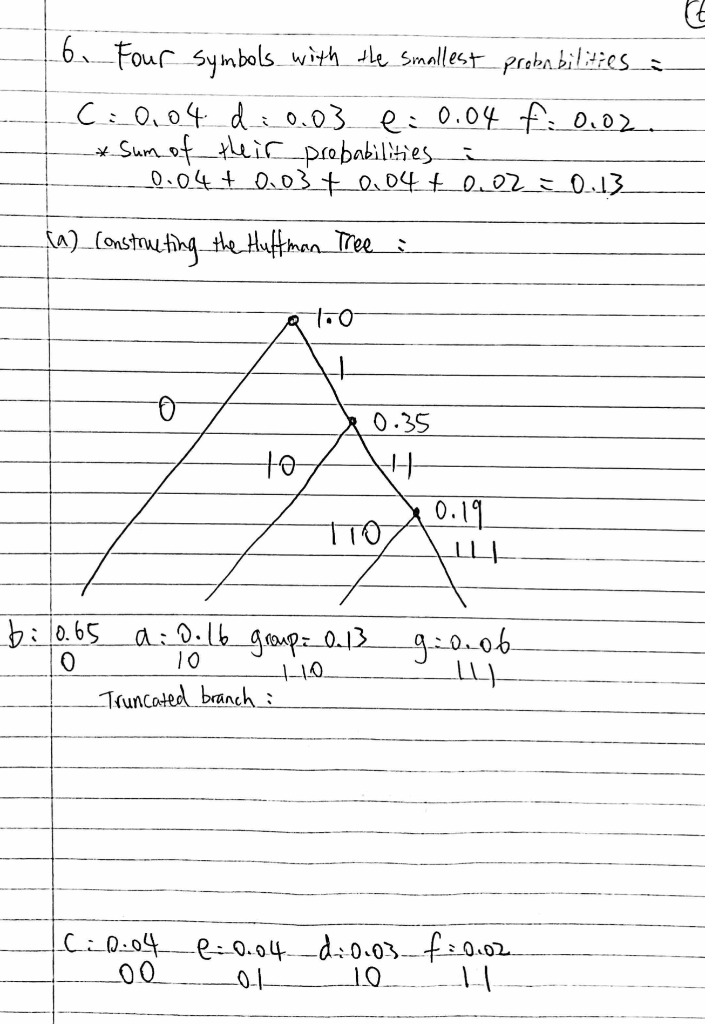 6. Four symbols with the smallest probabilities =
C: 0.04 d: 0.03 e: 0.04 f: 0.02.
* Sum of their probabilities :
0.04 + 0.03 + 0.04 + 0.02 = 0.13
(a) Constructing the Huffman Tree :
1.0
1
0
0.35
10 11
0.19
110
111
b: 0.65 a: 0.16 group: 0.13 g: 0.06
0 10 110 111
Truncated branch :
C: 0.04 e: 0.04 d: 0.03 f: 0.02
00 01 10 11